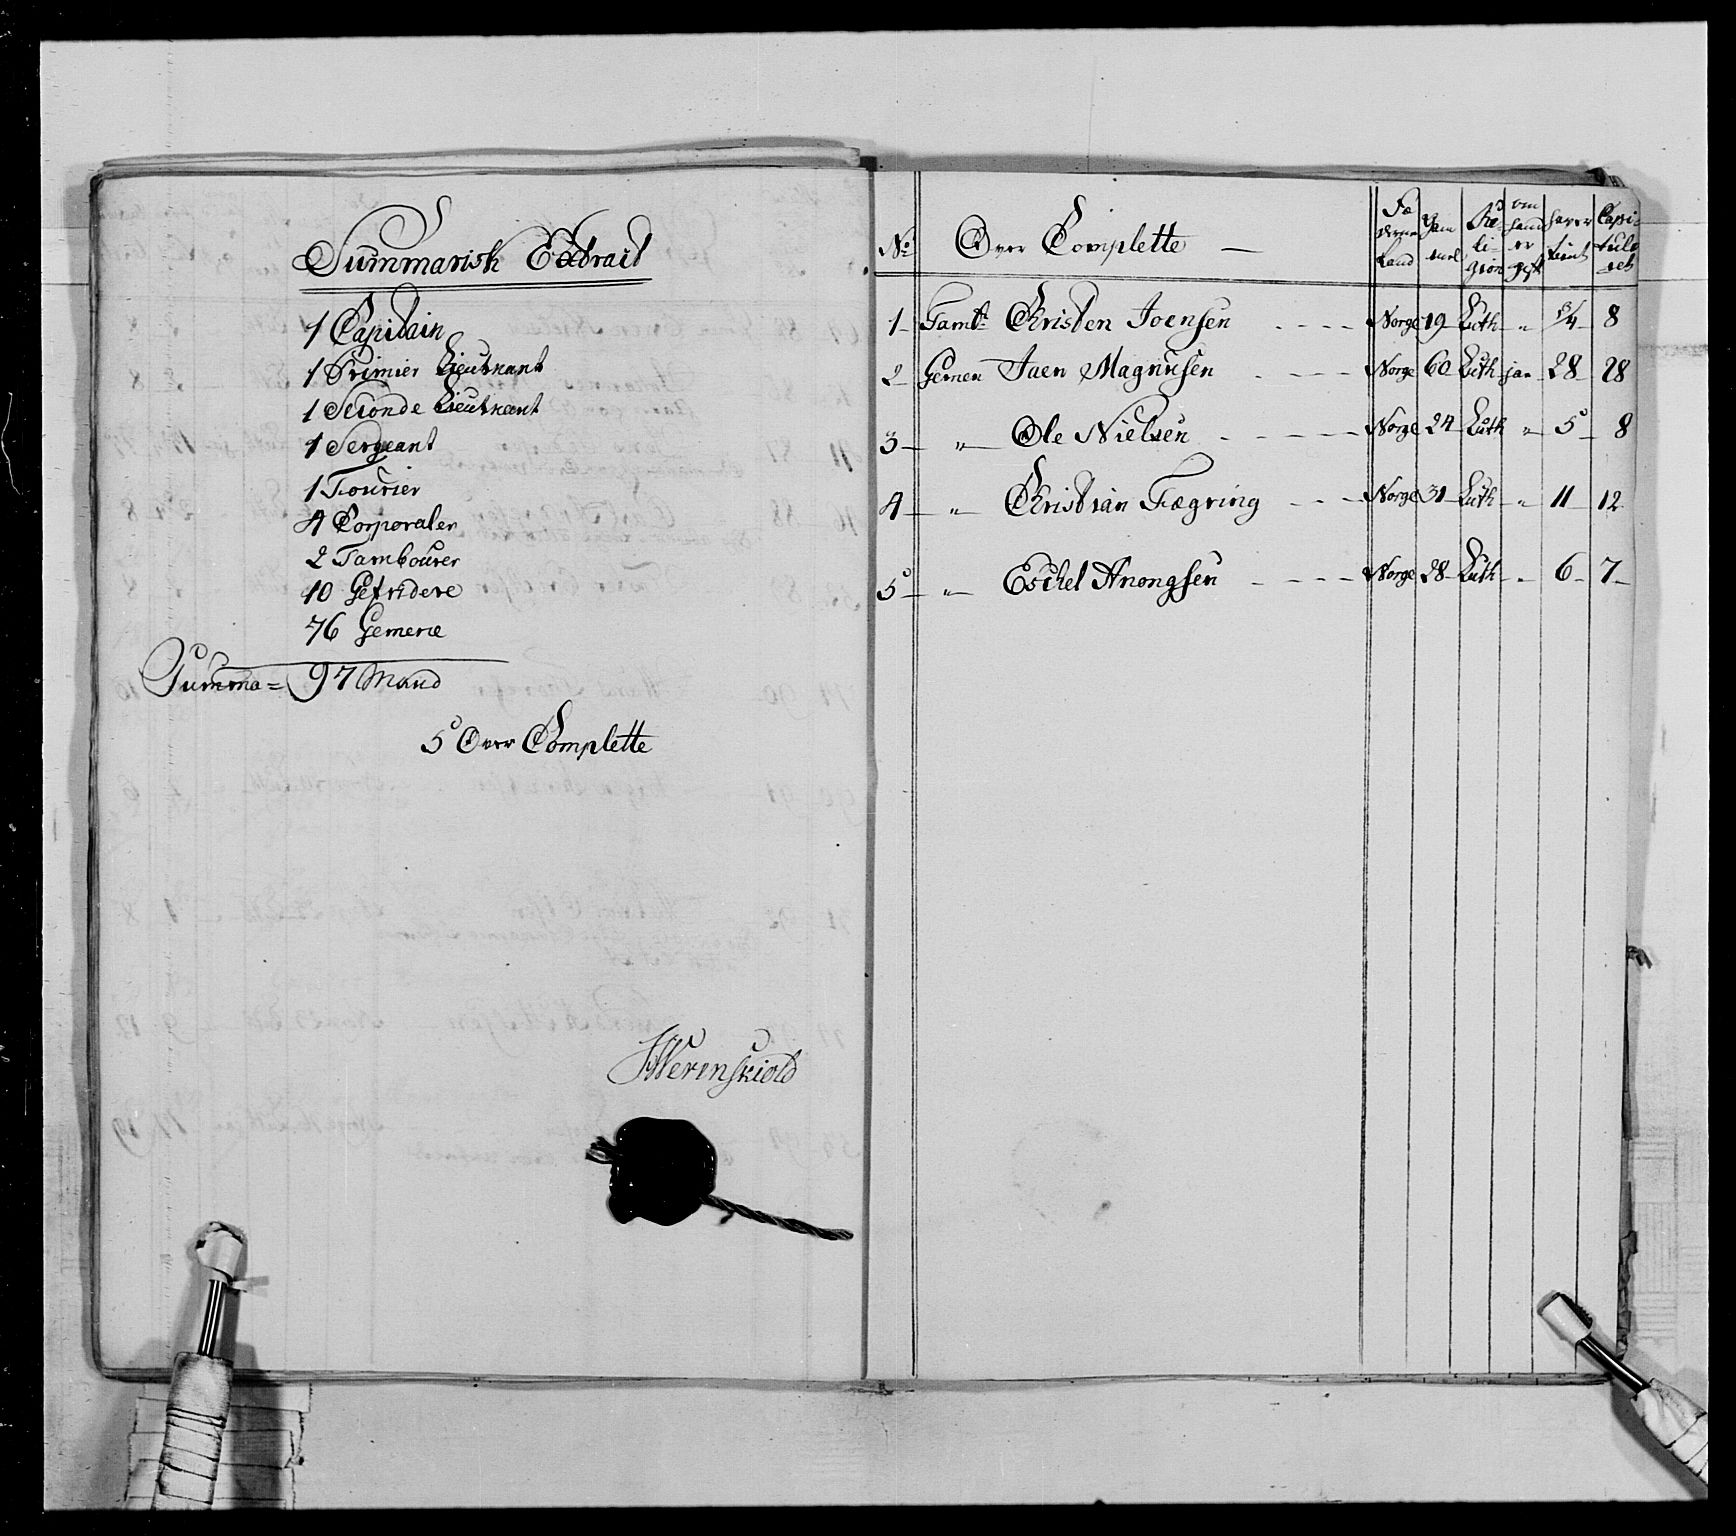 Summarisk Extract
1 Capitain
1 Primier Lieutnant
1 Seconde Lieutnant
1 Sergeant
1 Fourier
4 Corporaler
2 Tambourer
10 Gefridere
76 Gemene
Summa = 97 Mand
5 Over Complette
Werenskiold
No Over Complette — Fæderne Land Gammel Religion om hand er gift haver tient Capituleret
1 Tambr Christen Joensen - - - - Norge 19 Luth - „ 3/4 - 8
2 Gemen Joen Magnusen - - - - Norge 60 Luth jaa - 28 - 28
3 — „ — Ole Nielsen - - - - - Norge 24 Luth „ - 5 - 8
4 — „ — Christian Fægring - - - Norge 31 Luth - „ - 11 - 12
5 — „ — Eschel Anongsen - - - - Norge 28 Luth - „ - 6 - 7 -